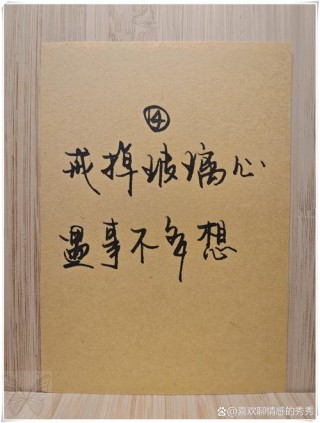 ⑭
戒掉玻璃心
遇事不多想
@喜欢聊情感的秀秀